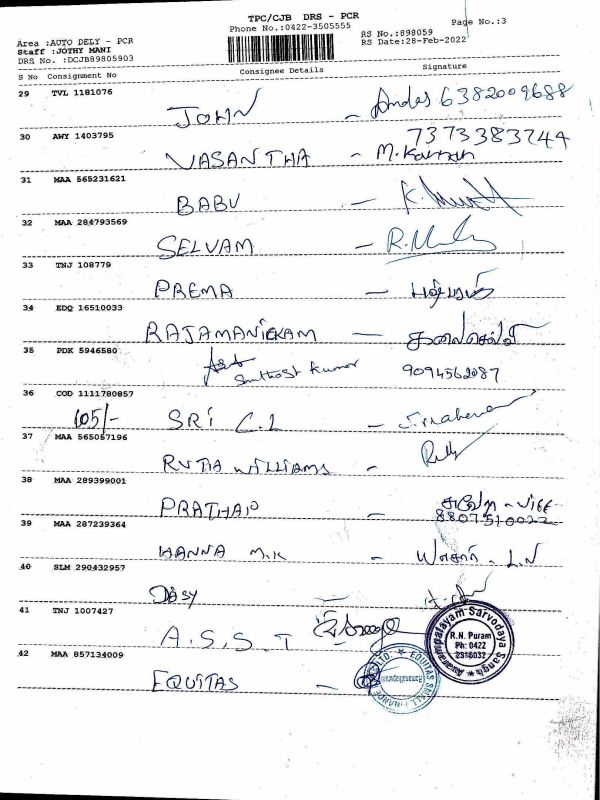 TPC/CJB DRS - PCR
Phone No.:0422-3505555
Page No.:3
Area :AUTO DELY - PCR
Staff :JOTHY MANI
DRS No. :DCJB89805903
RS No.:898059
RS Date:28-Feb-2022
S No Consignment No Consignee Details Signature
29 TVL 1181076
JOHN - 6382009688
30 AWY 1403795
7373383744
VASANTHA - M. Kannan
31 MAA 565231621
BABU -
32 MAA 284793569
SELVAM -
33 TNJ 108779
PREMA -
34 EDQ 16510033
RAJAMANICKAM - கலைசெல்வி
35 PDK 5946580
Santhosh Kumar 9094562087
36 COD 1111780857
105/- SRI C.L -
37 MAA 565057196
RUTHA WILLIAMS -
38 MAA 289399001
PRATHAP -
8807510022
39 MAA 287239364
HANNA M.K -
40 SLM 290432957
Daisy -
41 TNJ 1007427
A.S.S.T
Avarampalayam Sarvodaya Sangh
R.N. Puram
Ph: 0422
2315032
42 MAA 857134009
EQUITAS -
EQUITAS SMALL FINANCE